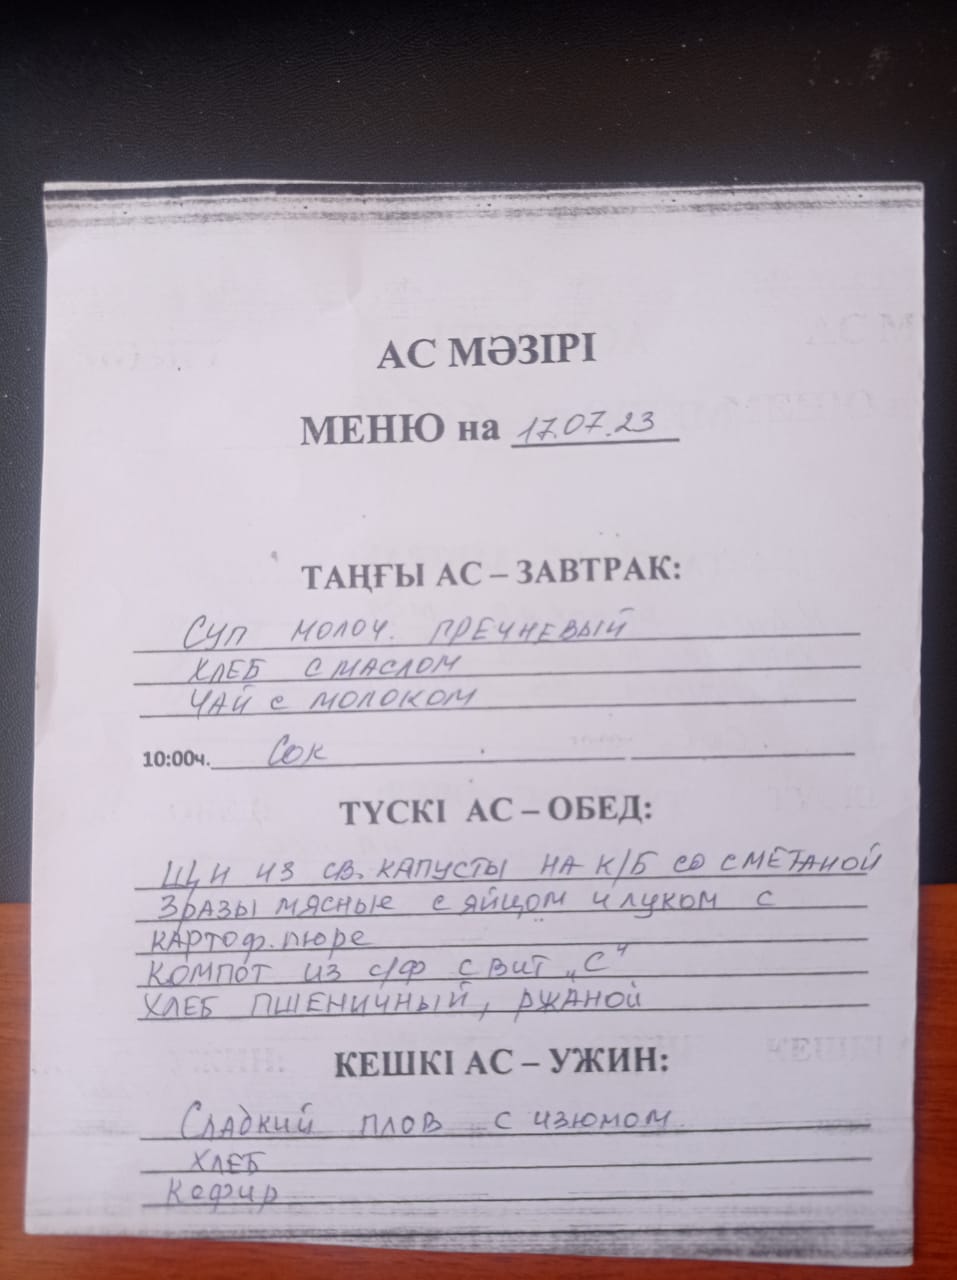 АС МӘЗІРІ
МЕНЮ на 17.07.23
ТАҢҒЫ АС – ЗАВТРАК:
Суп молоч. гречневый
хлеб с маслом
чай с молоком
10:00ч. Сок
ТҮСКІ АС – ОБЕД:
Щи из св. капусты на к/б со сметаной
Зразы мясные с яйцом и луком с
картоф. пюре
Компот из с/ф с вит „С"
хлеб пшеничный, ржаной
КЕШКІ АС – УЖИН:
Сладкий плов с изюмом.
хлеб
Кефир